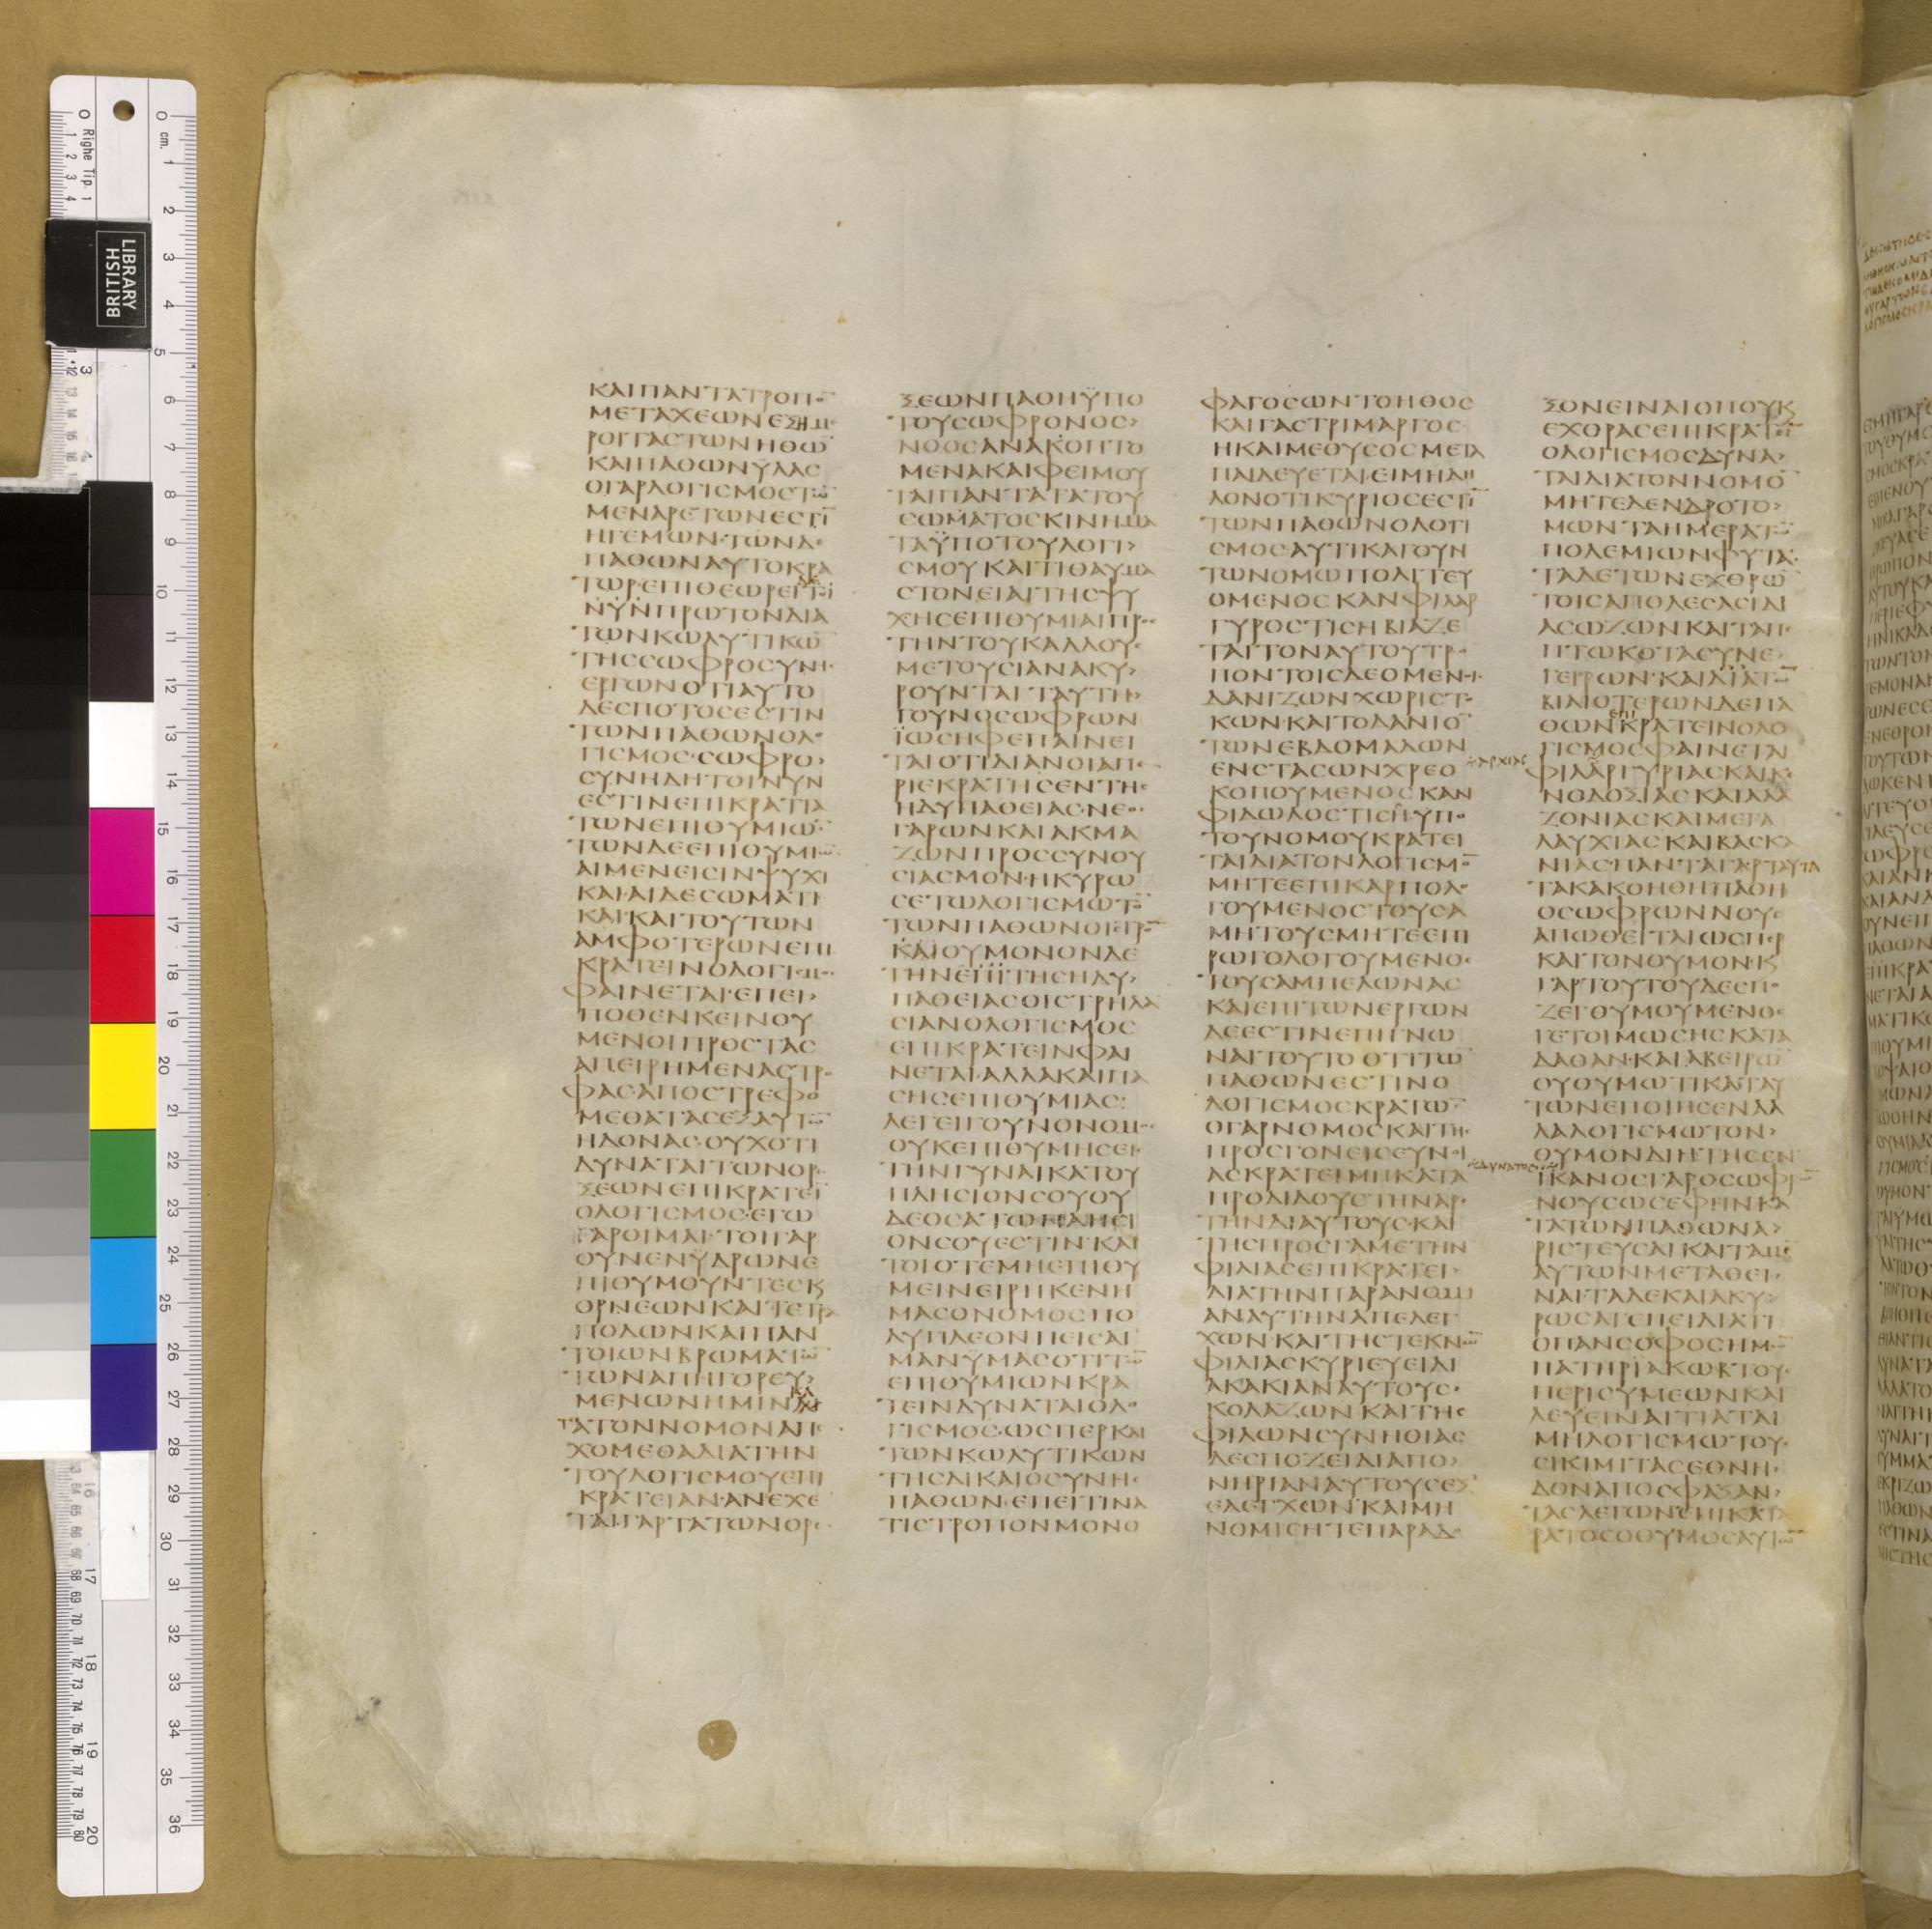 ΚΑΙΠΑΝΤΑΤΡΟΠΟ
ΜΕΤΑΧΕΩΝΕΞΗΜΕ
ΡΟΙΤΑΣΤΩΝΗΘΩ̅
ΚΑΙΠΑΘΩΝΫΛΑϹ
ΟΓΑΡΛΟΓΙϹΜΟϹΤΩ̅
ΜΕΝΑΡΕΤΩΝΕϹΤΙ̅
ΗΓΕΜΩΝ·ΤΩΝΔΕ
ΠΑΘΩΝΑΥΤΟΚΡΑ
ΤΩΡ·ΕΠΙΘΕΩΡΕΙΤΕ
ΝΥΝΠΡΩΤΟΝΔΙΑ
ΤΩΝΚΩΛΥΤΙΚΩ̅
ΤΗϹϹΩΦΡΟϹΥΝΗϹ
ΕΡΓΩΝΟΤΙΑΥΤΟ
ΔΕϹΠΟΤΟϹΕϹΤΙΝ
ΤΩΝΠΑΘΩΝΟΛΟ
ΓΙϹΜΟϹ·ϹΩΦΡΟ>
ϹΥΝΗΔΗΤΟΙΝΥΝ
ΕϹΤΙΝΕΠΙΚΡΑΤΙΑ
ΤΩΝΕΠΙΘΥΜΙΩ̅
ΤΩΝΔΕΕΠΙΘΥΜΙΩ̅
ΑΙΜΕΝΕΙϹΙΝΨΥΧΙ
ΚΑΙ·ΑΙΔΕϹΩΜΑΤΙ
ΚΑΙ·ΚΑΙΤΟΥΤΩΝ
ΑΜΦΟΤΕΡΩΝΕΠΙ
ΚΡΑΤΕΙΝΟΛΟΓΙϹΜΟϹ
ΦΑΙΝΕΤΑΙ·ΕΠΕΙ>
ΠΟΘΕΝΚΕΙΝΟΥ
ΜΕΝΟΙΠΡΟϹΤΑϹ
ΑΠΕΙΡΗΜΕΝΑϹΤΡΟ
ΦΑϹ·ΑΠΟϹΤΡΕΦΟ
ΜΕΘΑΤΑϹΕΞΑΥΤΩ̅
ΗΔΟΝΑϹ·ΟΥΧΟΤΙ
ΔΥΝΑΤΑΙΤΩΝΟΡΕ
ΞΕΩΝΕΠΙΚΡΑΤΕΙ̅
ΟΛΟΓΙϹΜΟϹ·ΕΓΩ
ΓΑΡΟΙΜΑΙ·ΤΟΙΓΑΡ
ΟΥΝΕΝΫΔΡΩΝΕ
ΠΙΘΥΜΟΥΝΤΕϹΚΑΙ
ΟΡΝΕΩΝΚΑΙΤΕΤΡΑ
ΠΟΔΩΝΚΑΙΠΑΝ
ΤΟΙΩΝΒΡΩΜΑΤΩ̅
ΤΩΝΑΠΗΓΟΡΕΥ>
ΜΕΝΩΝΗΜΙΝΚΑ
ΤΑΤΟΝΝΟΜΟΝΑΠΕ
ΧΟΜΕΘΑΔΙΑΤΗΝ
ΤΟΥΛΟΓΙϹΜΟΥΕΠΙ
ΚΡΑΤΕΙΑΝ·ΑΝΕΧΕ
ΤΑΙΓΑΡΤΑΤΩΝΟΡΕ
ΞΕΩΝΠΑΘΗΫΠΟ
ΤΟΥϹΩΦΡΟΝΟϹ>
ΝΟΟϹΑΝΑΚΟΠΤΟ
ΜΕΝΑΚΑΙΦΕΙΜΟΥ
ΤΑΙΠΑΝΤΑΤΑΤΟΥ
ϹΩΜΑΤΟϹΚΙΝΗΜΑ
ΤΑΫΠΟΤΟΥΛΟΓΙ>
ϹΜΟΥΚΑΙΤΙΘΑΥΜΑ
ϹΤΟΝΕΙΑΙΤΗϹΨΥ
ΧΗϹΕΠΙΘΥΜΙΑΙΠΡΟϹ
ΤΗΝΤΟΥΚΑΛΛΟΥϹ
ΜΕΤΟΥϹΙΑΝΑΚΥ>
ΡΟΥΝΤΑΙ·ΤΑΥΤΗ>
ΓΟΥΝΟϹΩΦΡΩΝ
ΪΩϹΗΦΕΠΑΙΝΕΙ
ΤΑΙΟΤΙΔΙΑΝΟΙΑΠΕ
ΡΙΕΚΡΑΤΗϹΕΝΤΗϹ
ΗΔΥΠΑΘΕΙΑϹ·ΝΕΟϹ
ΓΑΡΩΝΚΑΙΑΚΜΑ
ΖΩΝΠΡΟϹϹΥΝΟΥ
ϹΙΑϹΜΟΝ·ΗΚΥΡΩ
ϹΕΤΩΛΟΓΙϹΜΩΤΟ̅
ΤΩΝΠΑΘΩΝΟΙϹΤΡΟ̅
ΚΑΙΟΥΜΟΝΟΝΔΕ
ΤΗΝΕΠΙΤΗϹΗΔΥ>
ΠΑΘΕΙΑϹΟΙϹΤΡΗΛΑ
ϹΙΑΝΟΛΟΓΙϹΜΟϹ
ΕΠΙΚΡΑΤΕΙΝΦΑΙ
ΝΕΤΑΙ·ΑΛΛΑΚΑΙΠΑ
ϹΗϹΕΠΙΘΥΜΙΑϹ:
ΛΕΓΕΙΓΟΥΝΟΝΟΜΟϹ
ΟΥΚΕΠΙΘΥΜΗϹΕΙϹ
ΤΗΝΓΥΝΑΙΚΑΤΟΥ
ΠΛΗϹΙΟΝϹΟΥΟΥ
ΟΝϹΟΥΕϹΤΙΝ·ΚΑΙ
ΤΟΙΟΤΕΜΗΕΠΙΘΥ
ΜΕΙΝΕΙΡΗΚΕΝΗ
ΜΑϹΟΝΟΜΟϹΠΟ
ΛΥΠΛΕΟΝΠΕΙϹΑΙ
ΜΑΝΫΜΑϹΟΤΙΤΩ̅
ΕΠΙΘΥΜΙΩΝΚΡΑ
ΤΕΙΝΔΥΝΑΤΑΙΟΛΟ
ΓΙϹΜΟϹ·ΩϹΠΕΡΚΑΙ
ΤΩΝΚΩΛΥΤΙΚΩΝ
ΤΗϹΔΙΚΑΙΟϹΥΝΗϹ
ΠΑΘΩΝ·ΕΠΕΙΤΙΝΑ
ΤΙϹΤΡΟΠΟΝΜΟΝΟ
ΦΑΓΟϹΩΝΤΟΗΘΟϹ
ΚΑΙΓΑϹΤΡΙΜΑΡΓΟϹ
ΗΚΑΙΜΕΘΥϹΟϹΜΕΤΑ
ΠΑΙΔΕΥΕΤΑΙ·ΕΙΜΗΔΗ
ΛΟΝΟΤΙΚΥΡΙΟϹΕϹΤΙ̅
ΤΩΝΠΑΘΩΝΟΛΟΓΙ
ϹΜΟϹΑΥΤΙΚΑΓΟΥΝ
ΤΩΝΟΜΩΠΟΛΙΤΕΥ
ΟΜΕΝΟϹΚΑΝΦΙΛΑΡ
ΓΥΡΟϹΤΙϹΗΒΙΑΖΕ
ΤΑΙΤΟΝΑΥΤΟΥΤΡΟ
ΠΟΝΤΟΙϹΔΕΟΜΕΝΟΙϹ
ΔΑΝΙΖΩΝΧΩΡΙϹΤΟ
ΚΩΝ·ΚΑΙΤΟΔΑΝΙΟ̅
ΤΩΝΕΒΔΟΜΑΔΩΝ
ΕΝϹΤΑϹΩΝΧΡΕΟ
ΚΟΠΟΥΜΕΝΟϹΚΑΝ
ΦΙΔΩΛΟϹΤΙϹΗ·ΥΠΟ
ΤΟΥΝΟΜΟΥΚΡΑΤΕΙ
ΤΑΙΔΙΑΤΟΝΛΟΓΙϹΜΟ̅
ΜΗΤΕΕΠΙΚΑΡΠΟΛΟ
ΓΟΥΜΕΝΟϹΤΟΥϹΑ
ΜΗΤΟΥϹΜΗΤΕΕΠΙ
ΡΩΓΟΛΟΓΟΥΜΕΝΟϹ
ΤΟΥϹΑΜΠΕΛΩΝΑϹ
ΚΑΙΕΠΙΤΩΝΕΡΓΩΝ
ΔΕΕϹΤΙΝΕΠΙΓΝΩ
ΝΑΙΤΟΥΤΟΟΤΙΤΩ̅
ΠΑΘΩΝΕϹΤΙΝΟ
ΛΟΓΙϹΜΟϹΚΡΑΤΩ̅
ΟΓΑΡΝΟΜΟϹΚΑΙΤΗϹ
ΠΡΟϹΓΟΝΕΙϹΕΥΝΟΙ
ΑϹΚΡΑΤΕΙΜΗΚΑΤΑ
ΠΡΟΔΙΔΟΥϹΤΗΝΑΡΕ
ΤΗΝΔΙΑΥΤΟΥϹ·ΚΑΙ
ΤΗϹΠΡΟϹΓΑΜΕΤΗΝ
ΦΙΛΙΑϹΕΠΙΚΡΑΤΕΙ>
ΔΙΑΤΗΝΠΑΡΑΝΟΜΙ
ΑΝΑΥΤΗΝΑΠΕΛΕΓ
ΧΩΝ·ΚΑΙΤΗϹΤΕΚΝΩ̅
ΦΙΛΙΑϹΚΥΡΙΕΥΕΙΔΙ
ΑΚΑΚΙΑΝΑΥΤΟΥϹ·
ΚΟΛΑΖΩΝΚΑΙΤΗϹ
ΦΙΛΩΝϹΥΝΗΘΙΑϹ
ΔΕϹΠΟΖΕΙΔΙΑΠΟ>
ΝΗΡΙΑΝΑΥΤΟΥϹΕΞ
ΕΛΕΓΧΩΝ·ΚΑΙΜΗ
ΝΟΜΙϹΗΤΕΠΑΡΑΔΟ
÷ΑΡΧΙΑϹ
÷ΔΥΝΑΤΟϹ
ΞΟΝΕΙΝΑΙΟΠΟΥΚΑΙ
ΕΧΘΡΑϹΕΠΙΚΡΑΤΕΙ̅
ΟΛΟΓΙϹΜΟϹΔΥΝΑ>
ΤΑΙΔΙΑΤΟΝΝΟΜΟ̅
ΜΗΤΕΔΕΝΔΡΟΤΟ>
ΜΩΝ·ΤΑΗΜΕΡΑΤΩ̅
ΠΟΛΕΜΙΩΝΦΥΤΑ·
ΤΑΔΕΤΩΝΕΧΘΡΩ̅
ΤΟΙϹΑΠΟΛΕϹΑϹΙΔΙ
ΑϹΩΖΩΝΚΑΙΤΑΠΕ
ΠΤΩΚΟΤΑϹΥΝΕ>
ΓΕΙΡΩΝ·ΚΑΙΔΙΑΤΩ̅
ΒΙΑΙΟΤΕΡΩΝΔΕΠΑ
ΕΠΙ
ΘΩΝΚΡΑΤΕΙΝΟΛΟ
ΓΙϹΜΟϹΦΑΙΝΕΤΑΙ
ΦΙΛΑΡΓΥΡΙΑϹΚΑΙΚΕ
ΝΟΔΟΞΙΑϹΚΑΙΑΛΑ
ΖΟΝΙΑϹΚΑΙΜΕΓΑ
ΛΑΥΧΙΑϹΚΑΙΒΑϹΚΑ
ΝΙΑϹ·ΠΑΝΤΑΓΑΡΤΑΥΤΑ
ΤΑΚΑΚΟΗΘΗΠΑΘΗ
ΟϹΩΦΡΩΝΝΟΥϹ
ΑΠΩΘΕΙΤΑΙΩϹΠΕΡ
ΚΑΙΤΟΝΘΥΜΟΝ·ΚΑΙ
ΓΑΡΤΟΥΤΟΥΔΕϹΠΟ
ΖΕΙΘΥΜΟΥΜΕΝΟϹ
ΓΕΤΟΙΜΩϹΗϹΚΑΤΑ
ΔΑΘΑΝ·ΚΑΙΑΒΕΙΡΩ̅
ΟΥΘΥΜΩΤΙΚΑΤΑΥ
ΤΩΝΕΠΟΙΗϹΕΝΑΛ
ΛΑΛΟΓΙϹΜΩΤΟΝ>
ΘΥΜΟΝΔΙΗΤΗϹΕΝ
ΪΚΑΝΟϹΓΑΡΟϹΩΦΡΩ̅
ΝΟΥϹΩϹΕΦΗΝΚΑ
ΤΑΤΩΝΠΑΘΩΝΑ>
ΡΙϹΤΕΥϹΑΙΚΑΙΤΑΜΕ̅
ΑΥΤΩΝΜΕΤΑΘΕΙ>
ΝΑΙ·ΤΑΔΕΚΑΙΑΚΥ>
ΡΩϹΑΙ·ΕΠΕΙΔΙΑΤΙ
ΟΠΑΝϹΟΦΟϹΗΜΩ̅
ΠΑΤΗΡΪΑΚΩΒΤΟΥϹ
ΠΕΡΙϹΥΜΕΩΝΚΑΙ
ΛΕΥΕΙΝΑΙΤΙΑΤΑΙ
ΜΗΛΟΓΙϹΜΩΤΟΥϹ
ϹΙΚΙΜΙΤΑϹΕΘΝΗ>
ΔΟΝΑΠΟϹΦΑΞΑΝ>
ΤΑϹΛΕΓΩΝΕΠΙΚΑΤΑ
ΡΑΤΟϹΟΘΥΜΟϹΑΥΤΩ̅
BRITISH
LIBRARY